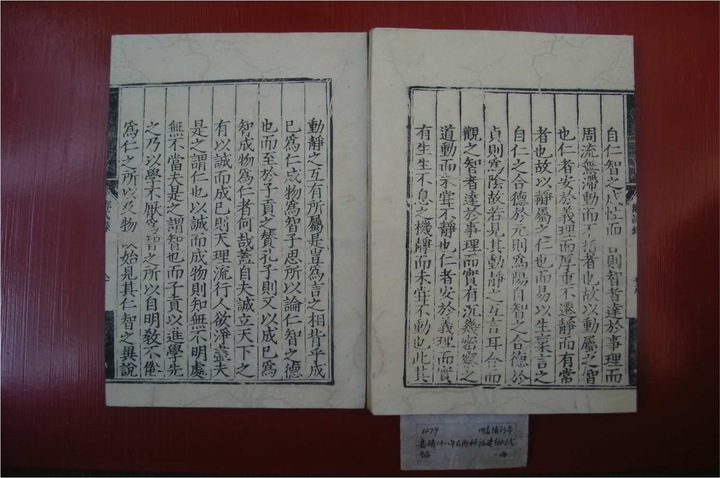 自仁智之成性而 則智者達於事理而
周流無滯動而不括者也故以動屬之智
也仁者安於義理而厚重不遷靜而有常
者也故以靜屬之仁也而易以生稟言之
自仁之合德於元則爲陽自智之合德於
貞則爲陰故若見其動靜之互言耳合而
觀之智者達於事理而實有沉幾密察之
道動而未甞不靜也仁者安於義理而實
有生生不息之機靜而未甞不動也此其
動靜之互有所屬是豈爲言之相背乎成
已爲仁成物爲智子思所以論仁智之德
也而至於子貢之贊孔子則又以成已爲
智成物爲仁者何哉蓋自夫誠立天下之
有以誠而成已則天理流行人欲淨盡夫
是之謂仁也以誠而成物則知無不明處
無不當夫是之謂智也而子貢以進學先
之乃以學不厭爲智之所以自明敎不倦
爲仁之所以及物 以始見其仁智之異說
嘉靖